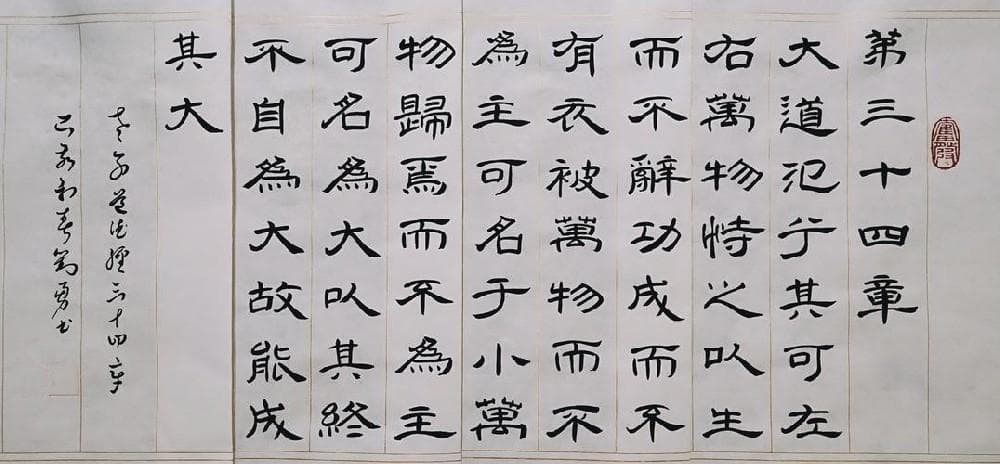 第三十四章
大道氾兮其可左
右萬物恃之以生
而不辭功成而不
有衣被萬物而不
為主可名于小萬
物歸焉而不為主
可名為大以其終
不自為大故能成
其大
老子道德經三十四章
己亥初春勇书